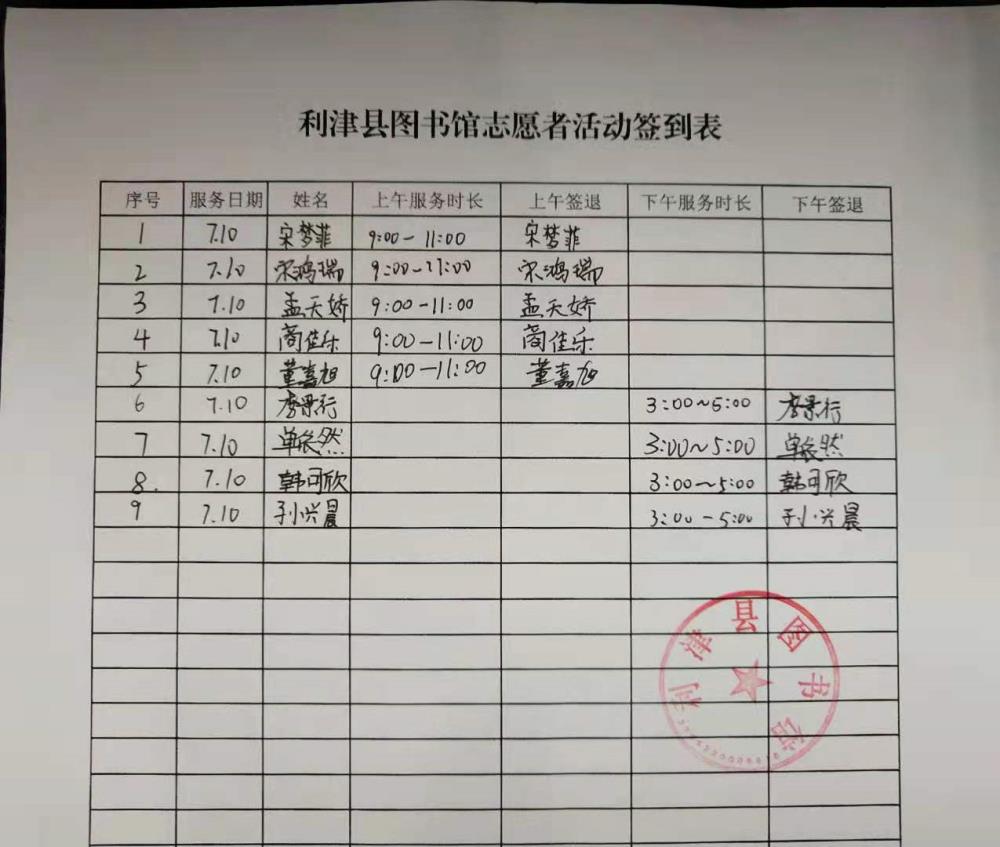 利津县图书馆志愿者活动签到表
序号 服务日期 姓名 上午服务时长 上午签退 下午服务时长 下午签退
1 7.10 宋梦菲 9:00-11:00 宋梦菲
2 7.10 宋鸿瑞 9:00-11:00 宋鸿瑞
3 7.10 孟天娇 9:00-11:00 孟天娇
4 7.10 蔺佳乐 9:00-11:00 蔺佳乐
5 7.10 董嘉旭 9:00-11:00 董嘉旭
6 7.10 李景行 3:00~5:00 李景行
7 7.10 单依然 3:00~5:00 单依然
8. 7.10 韩可欣 3:00~5:00 韩可欣
9 7.10 孙兴晨 3:00-5:00 孙兴晨
利津县图书馆